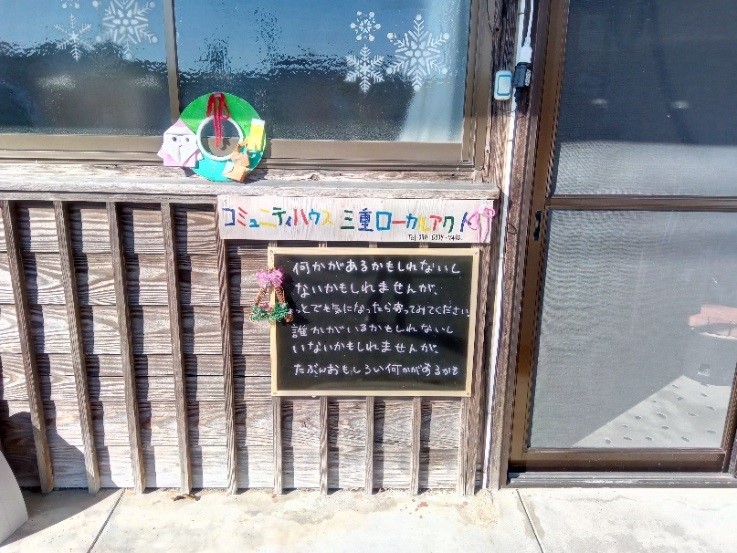 コミュニティハウス 三重ローカルアクト
何かがあるかもしれないし
ないかもしれませんが、
っとでも気になったら寄ってみてください
誰かがいるかもしれないし
いないかもしれませんが、
たぶんおもしろい何かがあるかも